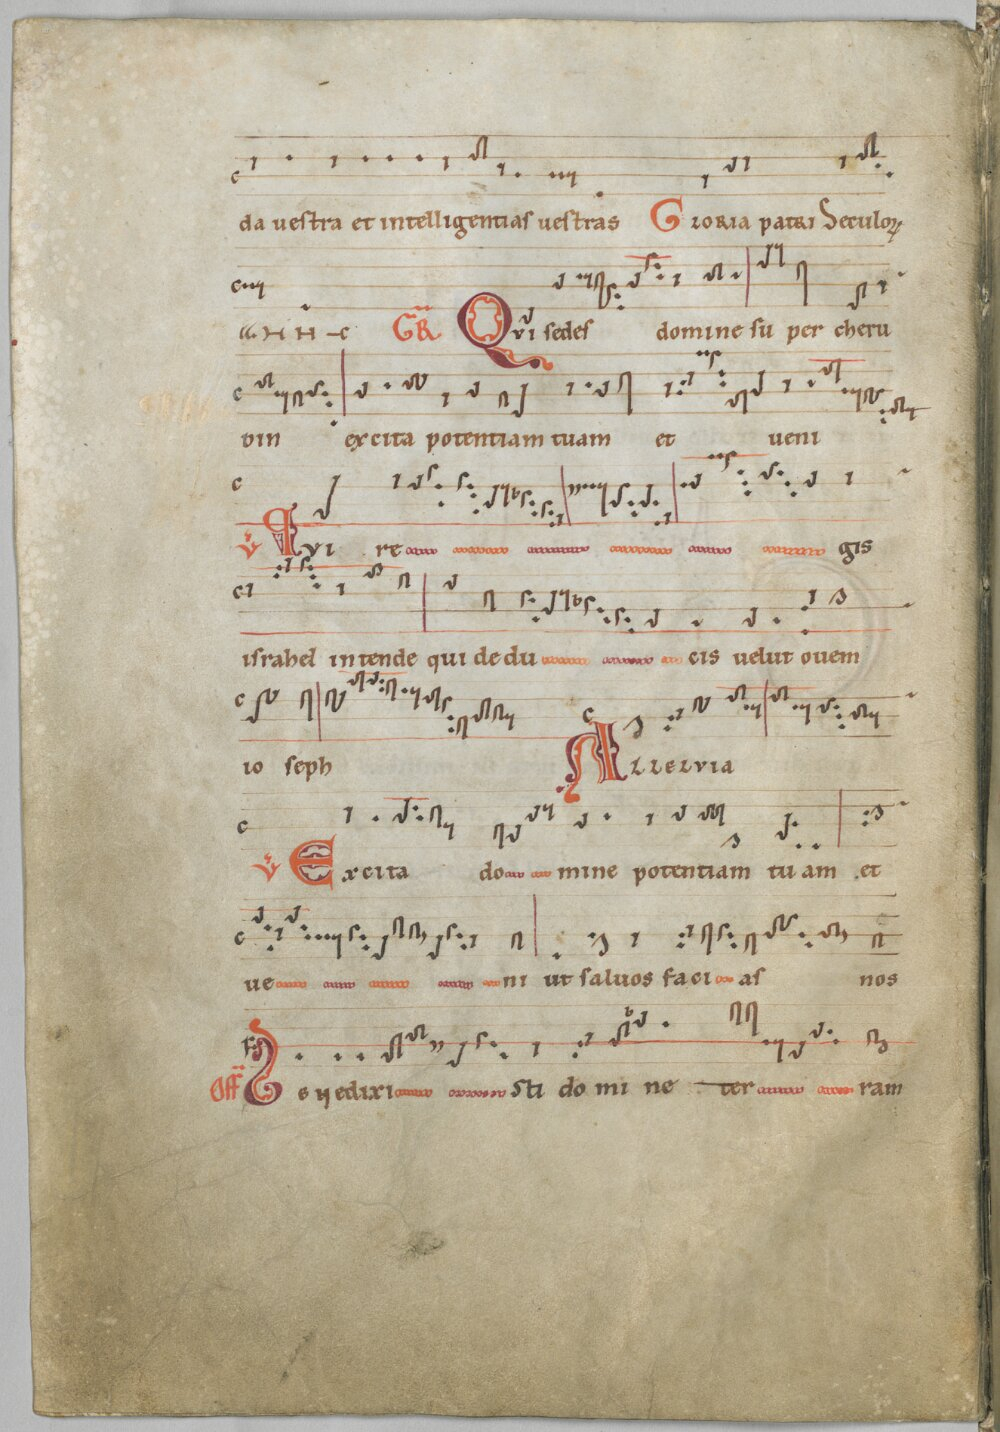 da uestra et intelligentias uestras Gloria patri Seculoꝝ
GR Qvi sedes domine su per cheru
bin excita potentiam tuam et ueni
v Qvi re gis
israhel intende qui dedu cis uelut ouem
io seph Allelvia
v Excita do mine potentiam tu am et
ue ni ut saluos faci as nos
Off Benedixi sti do mi ne ter ram